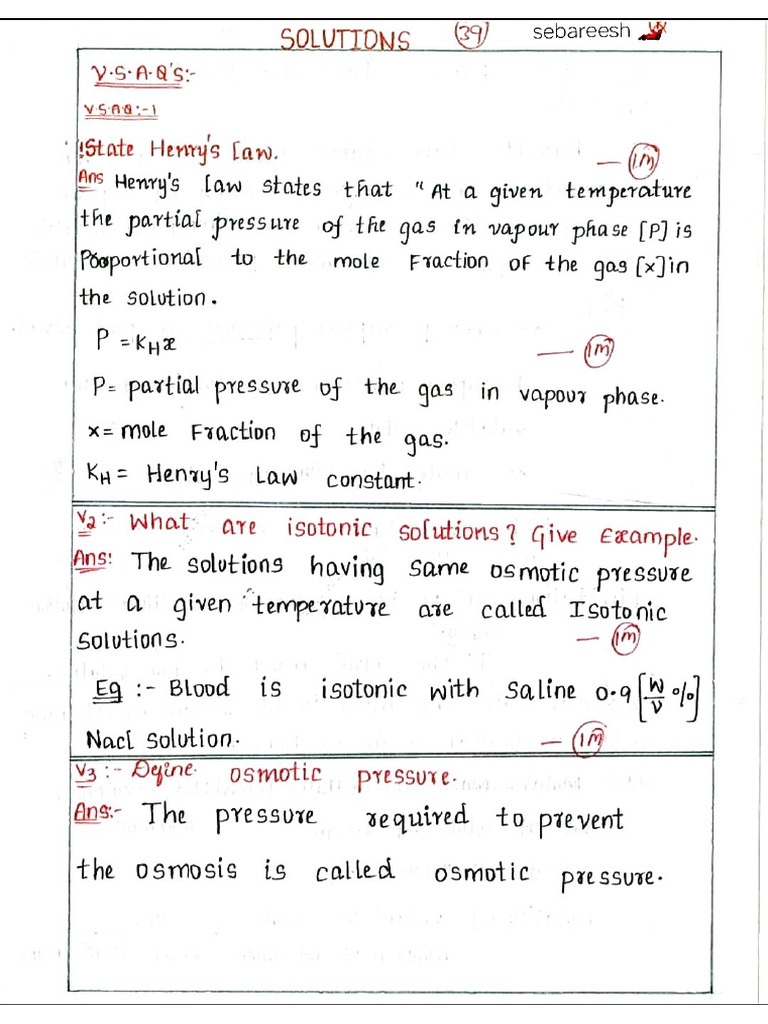 SOLUTIONS (39) sebareesh
V.S.A.Q'S:-
V.S.A.Q:-1
!State Henry's Law. — (1M)
Ans Henry's law states that "At a given temperature
the partial pressure of the gas in vapour phase [P] is
Proportional to the mole Fraction of the gas [x] in
the solution.
P = KHx — (1M)
P= partial pressure of the gas in vapour phase.
x= mole Fraction of the gas.
KH = Henry's Law constant.
V2:- What are isotonic solutions? Give Example.
Ans: The solutions having same osmotic pressure
at a given temperature are called Isotonic
Solutions. — (1M)
Eg :- Blood is isotonic with Saline 0.9 [W/V %]
Nacl solution. — (1M)
V3:- Define osmotic pressure.
Ans:- The pressure required to prevent
the osmosis is called osmotic pressure.